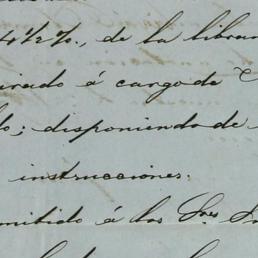 4 1/2 %, de la libran
irado á cargo de
lo; disponiendo de
instrucciones.
mitido á los Sres